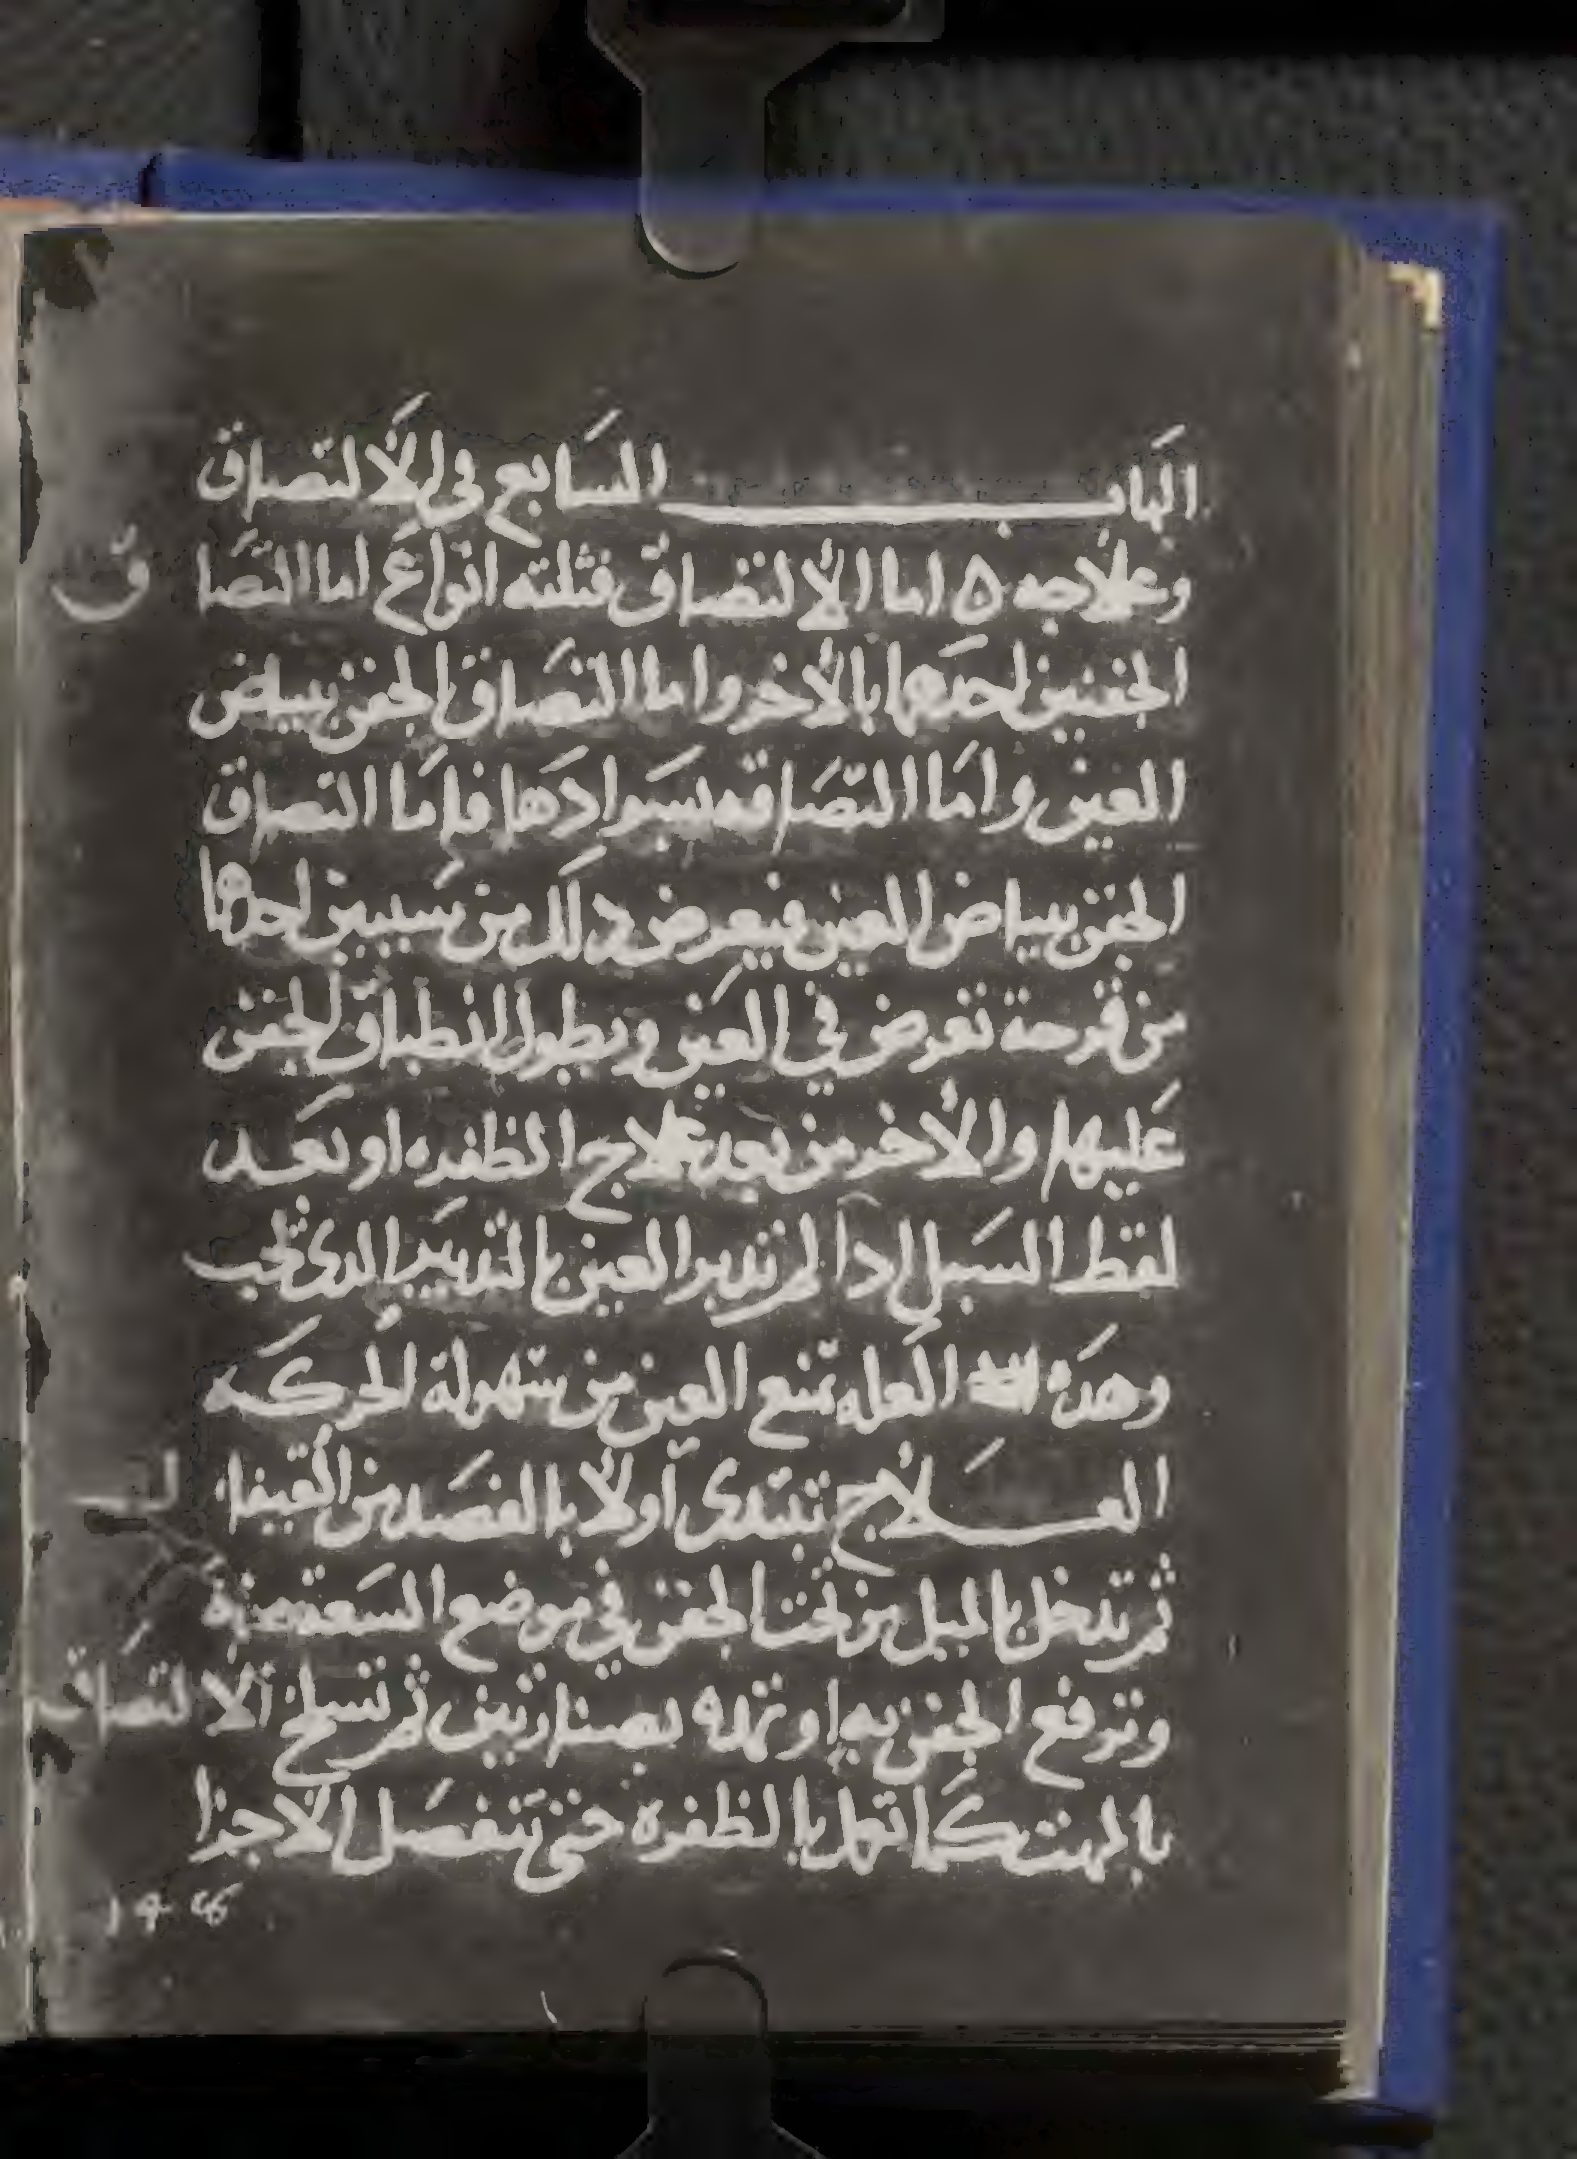 الباب السابع في الالتصاق
وعلاجه ٥ اما الالتصاق فثلثه انواع اما التصاق
الجفنين احدهما بالاخر واما التصاق الجفن ببياض
العين واما التصاقه بسوادها فاما التصاق
الجفن ببياض العين فيعرض ذلك من سببين احدهما
من قرحة تعرض في العين ويطول انطباق الجفن
عليها والاخر من بعد علاج الظفره او بعد
لقط السبل ادا لم تدبر العين بالتدبير الدى يجب
وهده العله تمنع العين من سهولة الحركه
العلاج تبتدى اولا بالفصد من القيفال
ثم تدخل بالميل من تحت الجفن في موضع السعة منه
وترفع الجفن به او تمده بصنارتين ثم تسلخ الالتصاق
بالمهت كما تعمل بالظفرة حتى تنفصل الاجزا